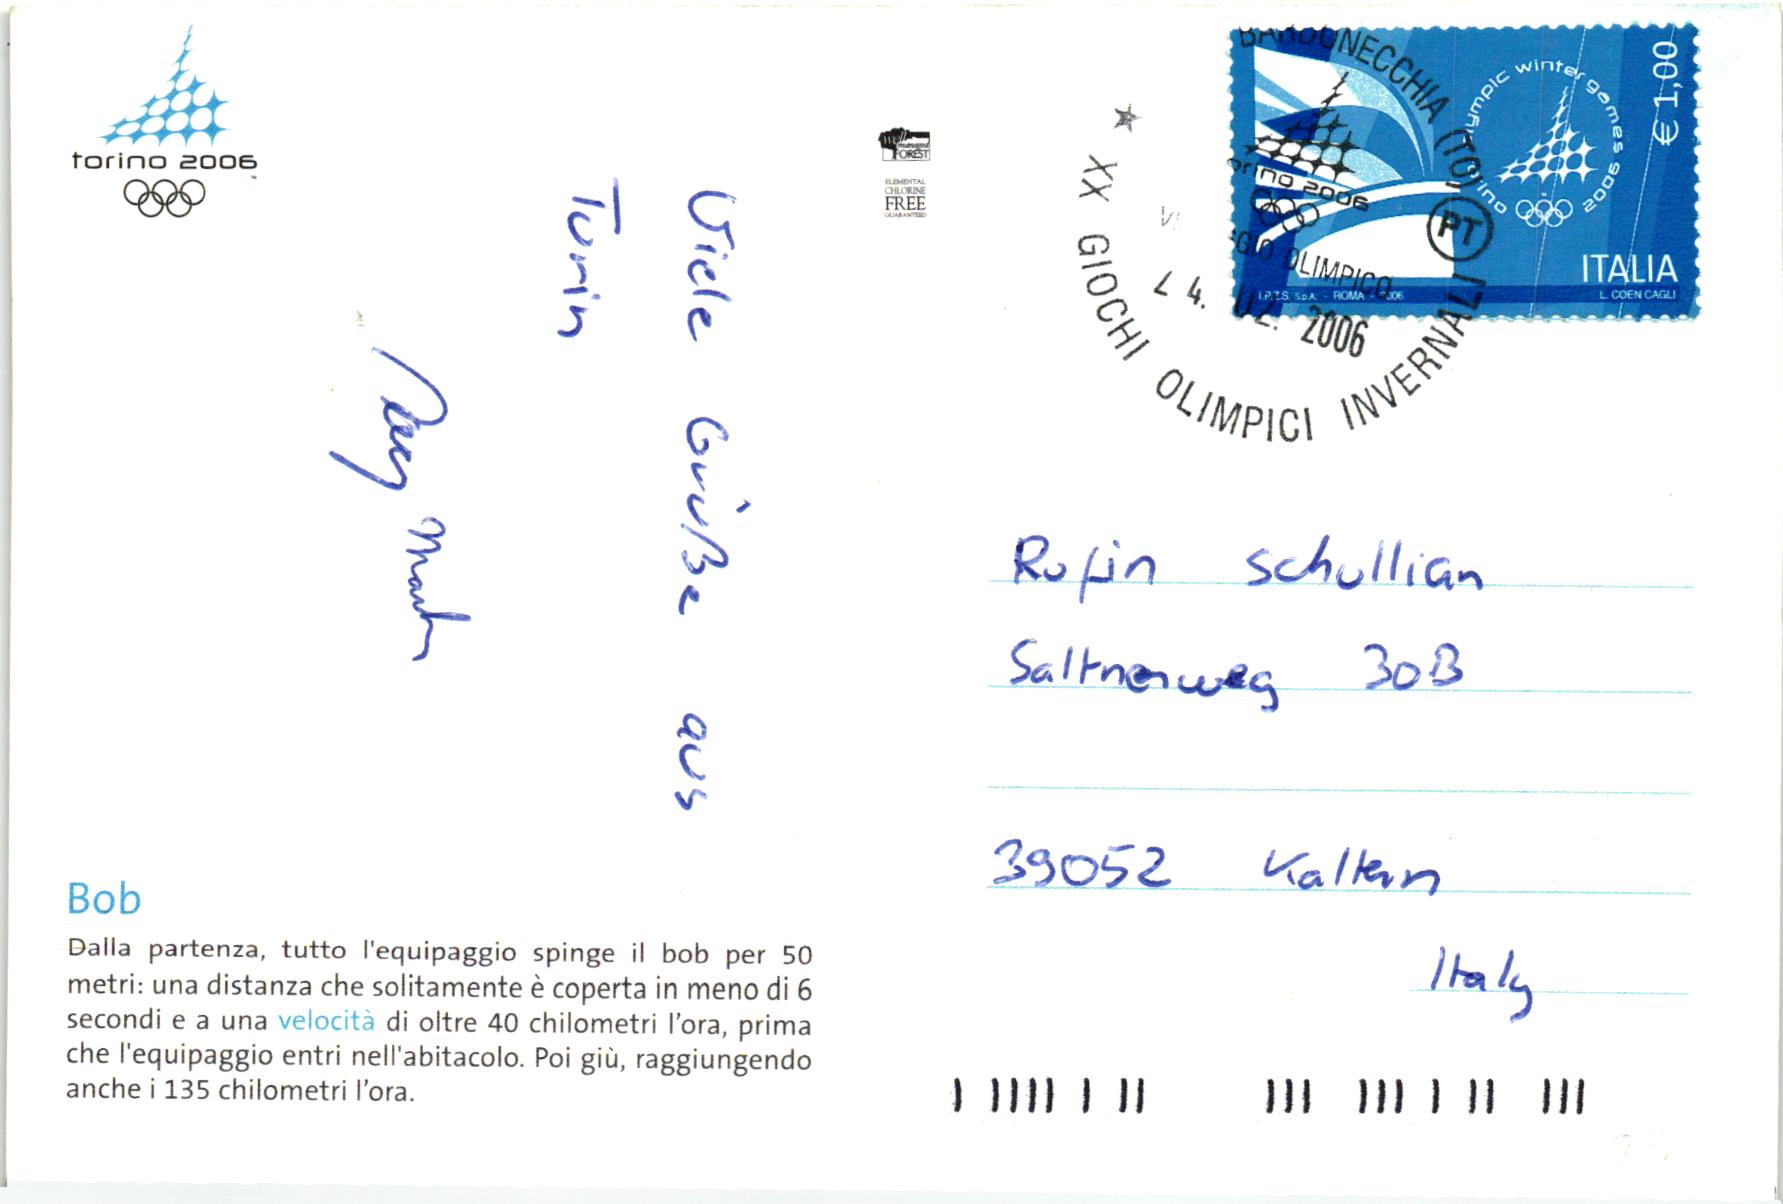 torino 2006
Well
managed
FOREST
ELEMENTAL
CHLORINE
FREE
GUARANTEED
Viele Grüße aus
Turin
Bob
Dalla partenza, tutto l'equipaggio spinge il bob per 50
metri: una distanza che solitamente è coperta in meno di 6
secondi e a una velocità di oltre 40 chilometri l'ora, prima
che l'equipaggio entri nell'abitacolo. Poi giù, raggiungendo
anche i 135 chilometri l'ora.
BARDONECCHIA (TO)
PT
XX GIOCHI OLIMPICI INVERNALI
torino 2006
OLIMPICO
02. 2006
olympic winter games
torino 2006
€ 1,00
ITALIA
I.P.Z.S. S.p.A. - ROMA - 2006
L. COEN CAGLI
Rufin Schullian
Saltnerweg 30B
39052 Kaltern
Italy